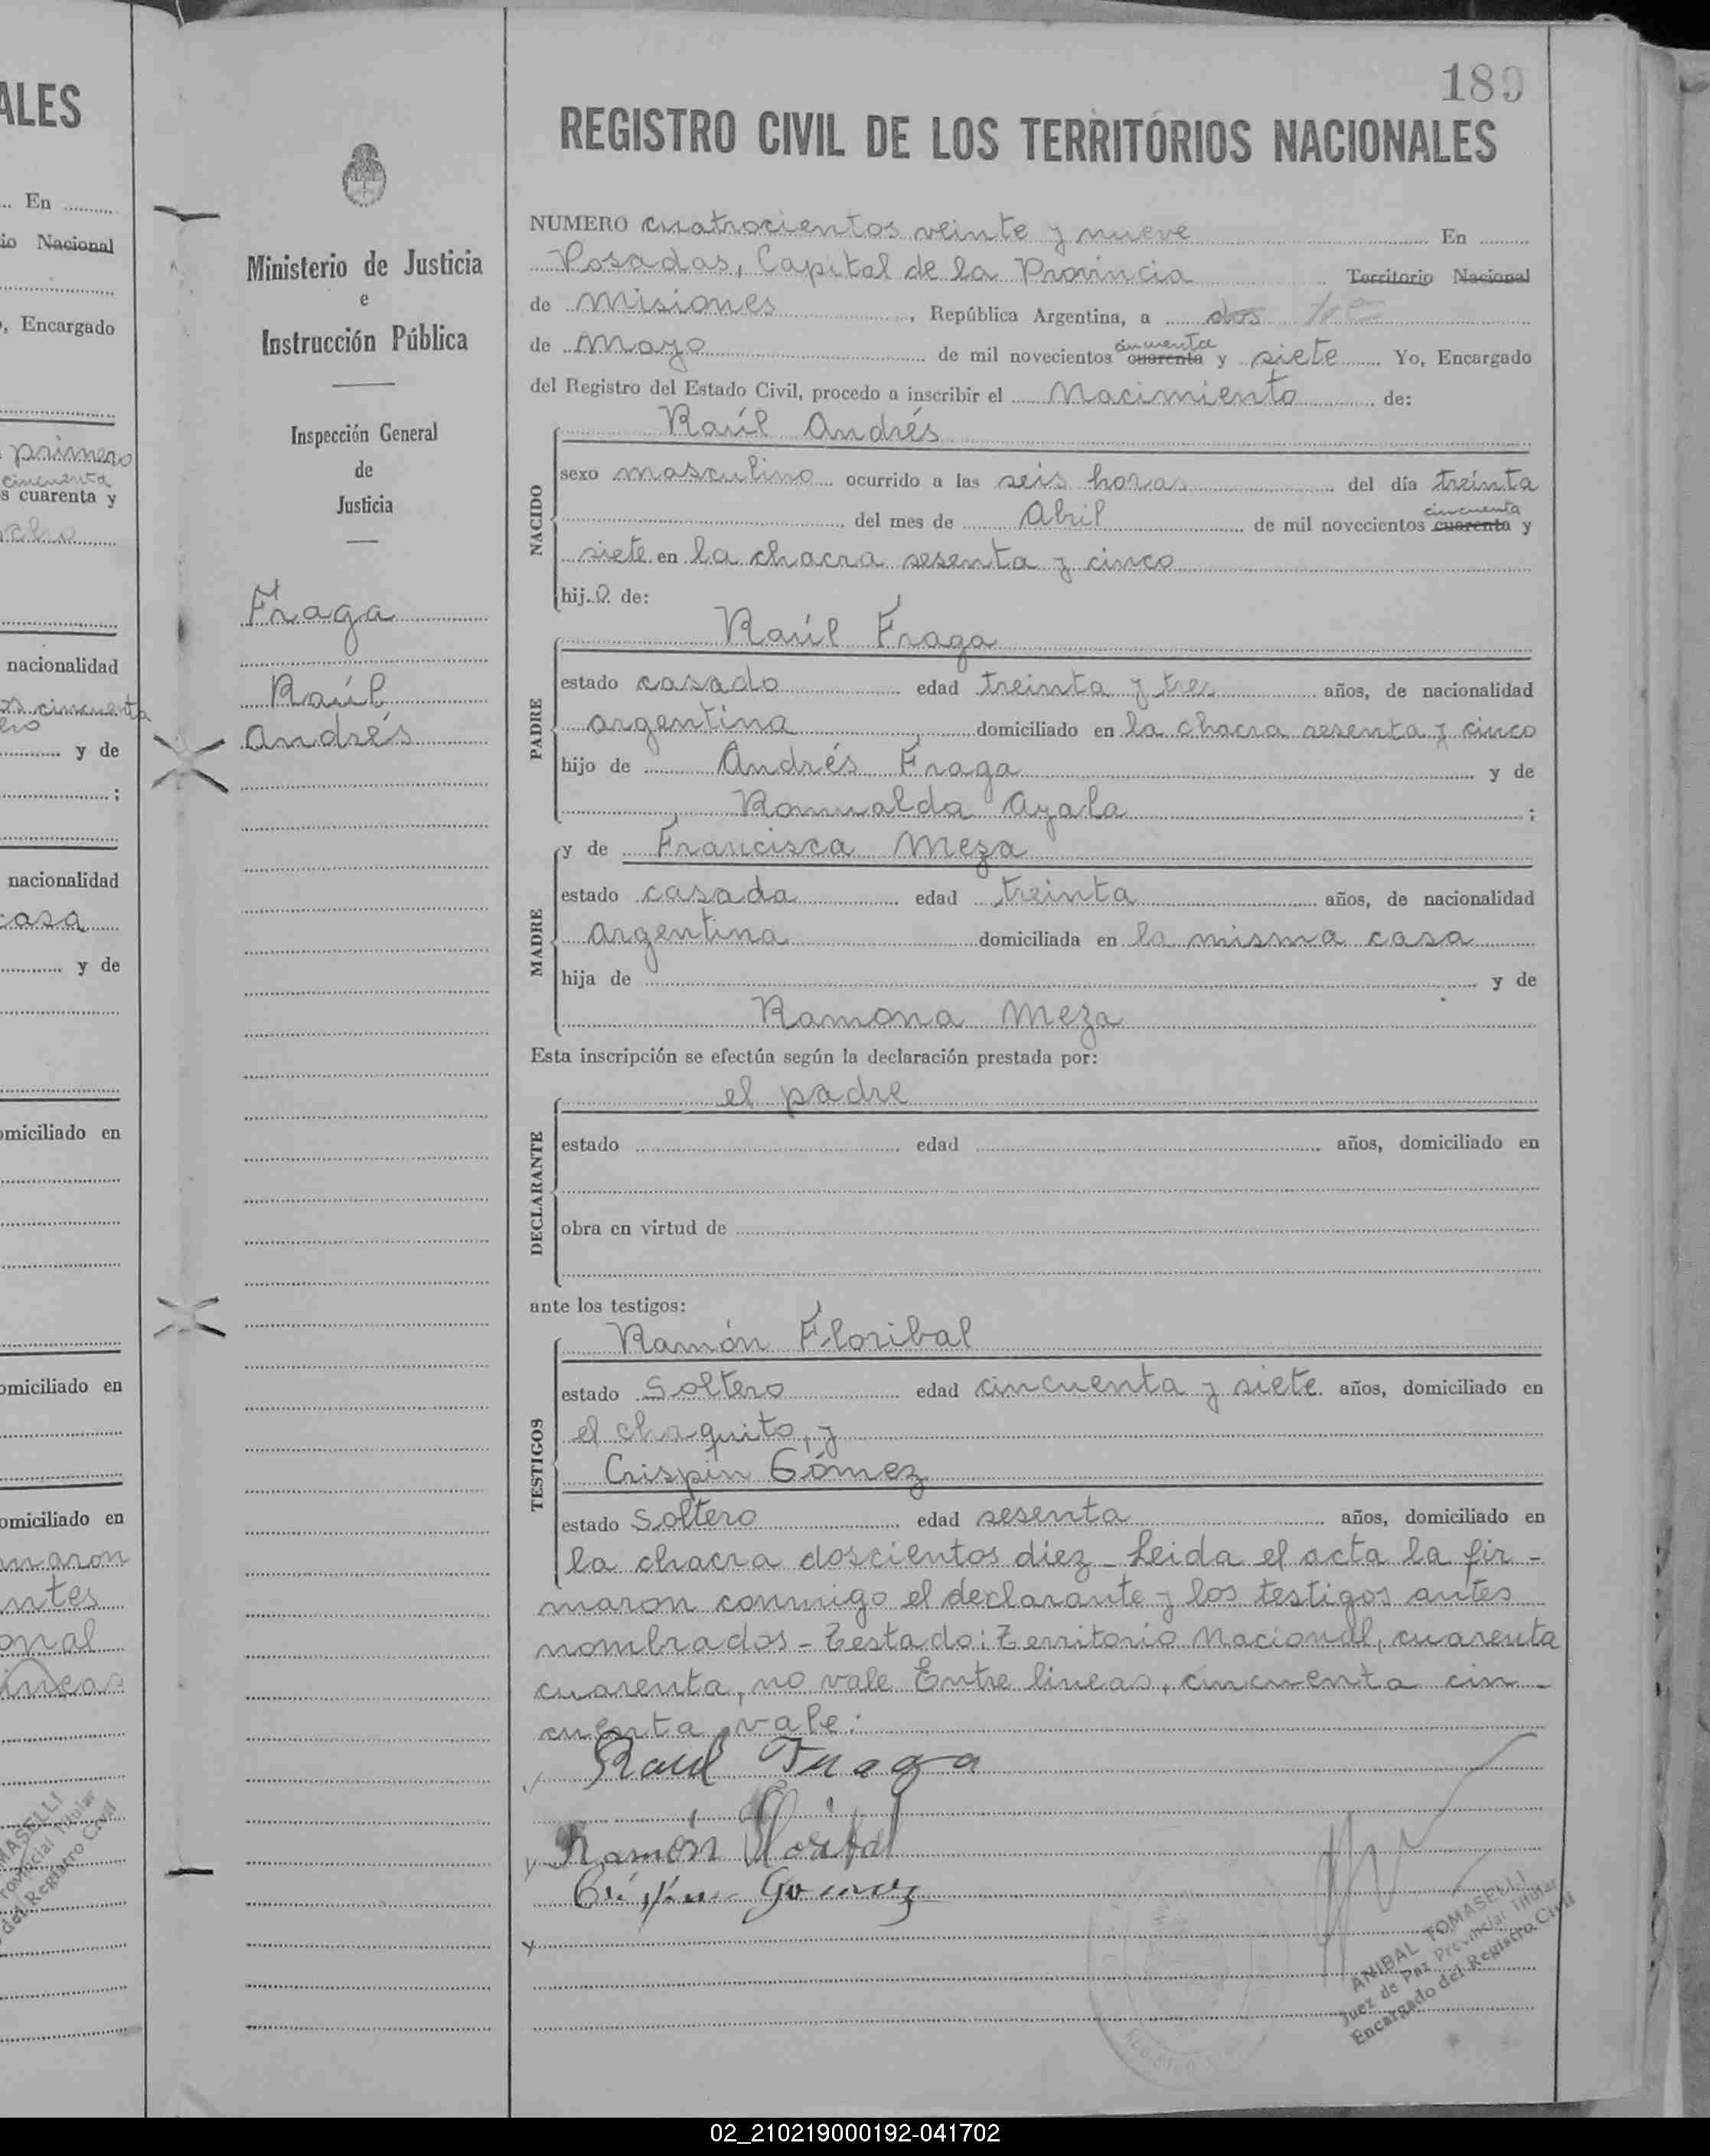 ALES
En
io Nacional
, Encargado
primero
cincuenta
s cuarenta y
nacionalidad
cincuenta
y de
;
nacionalidad
casa
y de
omiciliado en
omiciliado en
omiciliado en
maron
ntes
onal
lineas
MASELLI
rovincial Titular
del Registro Civil
Ministerio de Justicia
e
Instrucción Pública
Inspección General
de
Justicia
Fraga
Raúl
Andrés
189
REGISTRO CIVIL DE LOS TERRITORIOS NACIONALES
NUMERO cuatrocientos veinte y nueve En
Posadas, Capital de la Provincia Territorio Nacional
de Misiones, República Argentina, a dos
cincuenta
de Mayo de mil novecientos cuarenta y siete Yo, Encargado
del Registro del Estado Civil, procedo a inscribir el Nacimiento de:
Raúl Andrés
NACIDO
sexo masculino ocurrido a las seis horas del día treinta
cincuenta
, del mes de Abril de mil novecientos cuarenta y
siete en la chacra sesenta y cinco
hijo de:
Raúl Fraga
PADRE
estado casado edad treinta y tres años, de nacionalidad
argentina domiciliado en la chacra sesenta y cinco
hijo de Andrés Fraga y de
Romualda Ayala ;
y de Francisca Meza
MADRE
estado casada edad treinta años, de nacionalidad
argentina domiciliada en la misma casa
hija de y de
Ramona Meza
Esta inscripción se efectúa según la declaración prestada por:
el padre
DECLARANTE
estado edad años, domiciliado en
obra en virtud de
ante los testigos:
Ramón Floribal
TESTIGOS
estado Soltero edad cincuenta y siete años, domiciliado en
el chaquito, y
Crispin Gómez
estado Soltero edad sesenta años, domiciliado en
la chacra doscientos diez - Leida el acta la fir-
maron conmigo el declarante y los testigos antes
nombrados - Testado: Territorio Nacional, cuarenta
cuarenta, no vale Entre lineas, cincuenta cin-
cuenta, vale.
Raul Fraga
Ramón Floribal
Crispin Gomez
ANIBAL TOMASELLI
Juez de Paz Provincial Titular
Encargado del Registro Civil
02_210219000192-041702